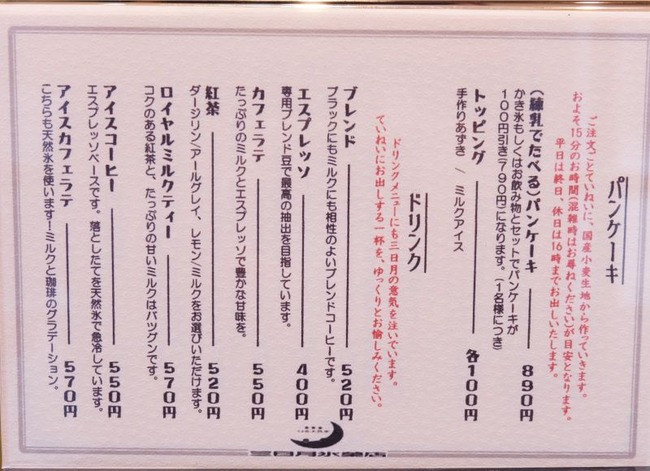 パンケーキ
ご注文ごとていねいに、国産小麦生地から作っていきます。
およそ15分のお時間(混雑時はお尋ねください)が目安となります。
平日は終日、休日は16時までお出しいたします。
(練乳でたべる)パンケーキ 890円
かき氷もしくはお飲み物とセットでパンケーキが
100円引き(790円)になります。(1名様につき)
トッピング 各100円
手作りあずき / ミルクアイス
ドリンク
ドリンクメニューにも三日月の意気を注いでいます。
ていねいにお出しする一杯を、ゆっくりとお愉しみください。
ブレンド 520円
ブラックにもミルクにも相性のよいブレンドコーヒーです。
エスプレッソ 400円
専用ブレンド豆で最高の抽出を目指しています。
カフェラテ 550円
たっぷりのミルクとエスプレッソで豊かな甘味を。
紅茶 520円
ダージリン/アールグレイ、レモン/ミルクをお選びいただけます。
ロイヤルミルクティー 570円
コクのある紅茶と、たっぷりの甘いミルクはバツグンです。
アイスコーヒー 550円
エスプレッソベースです。落としたてを天然氷で急冷しています。
アイスカフェラテ 570円
こちらも天然氷を使います!ミルクと珈琲のグラデーション。
三日月氷菓店